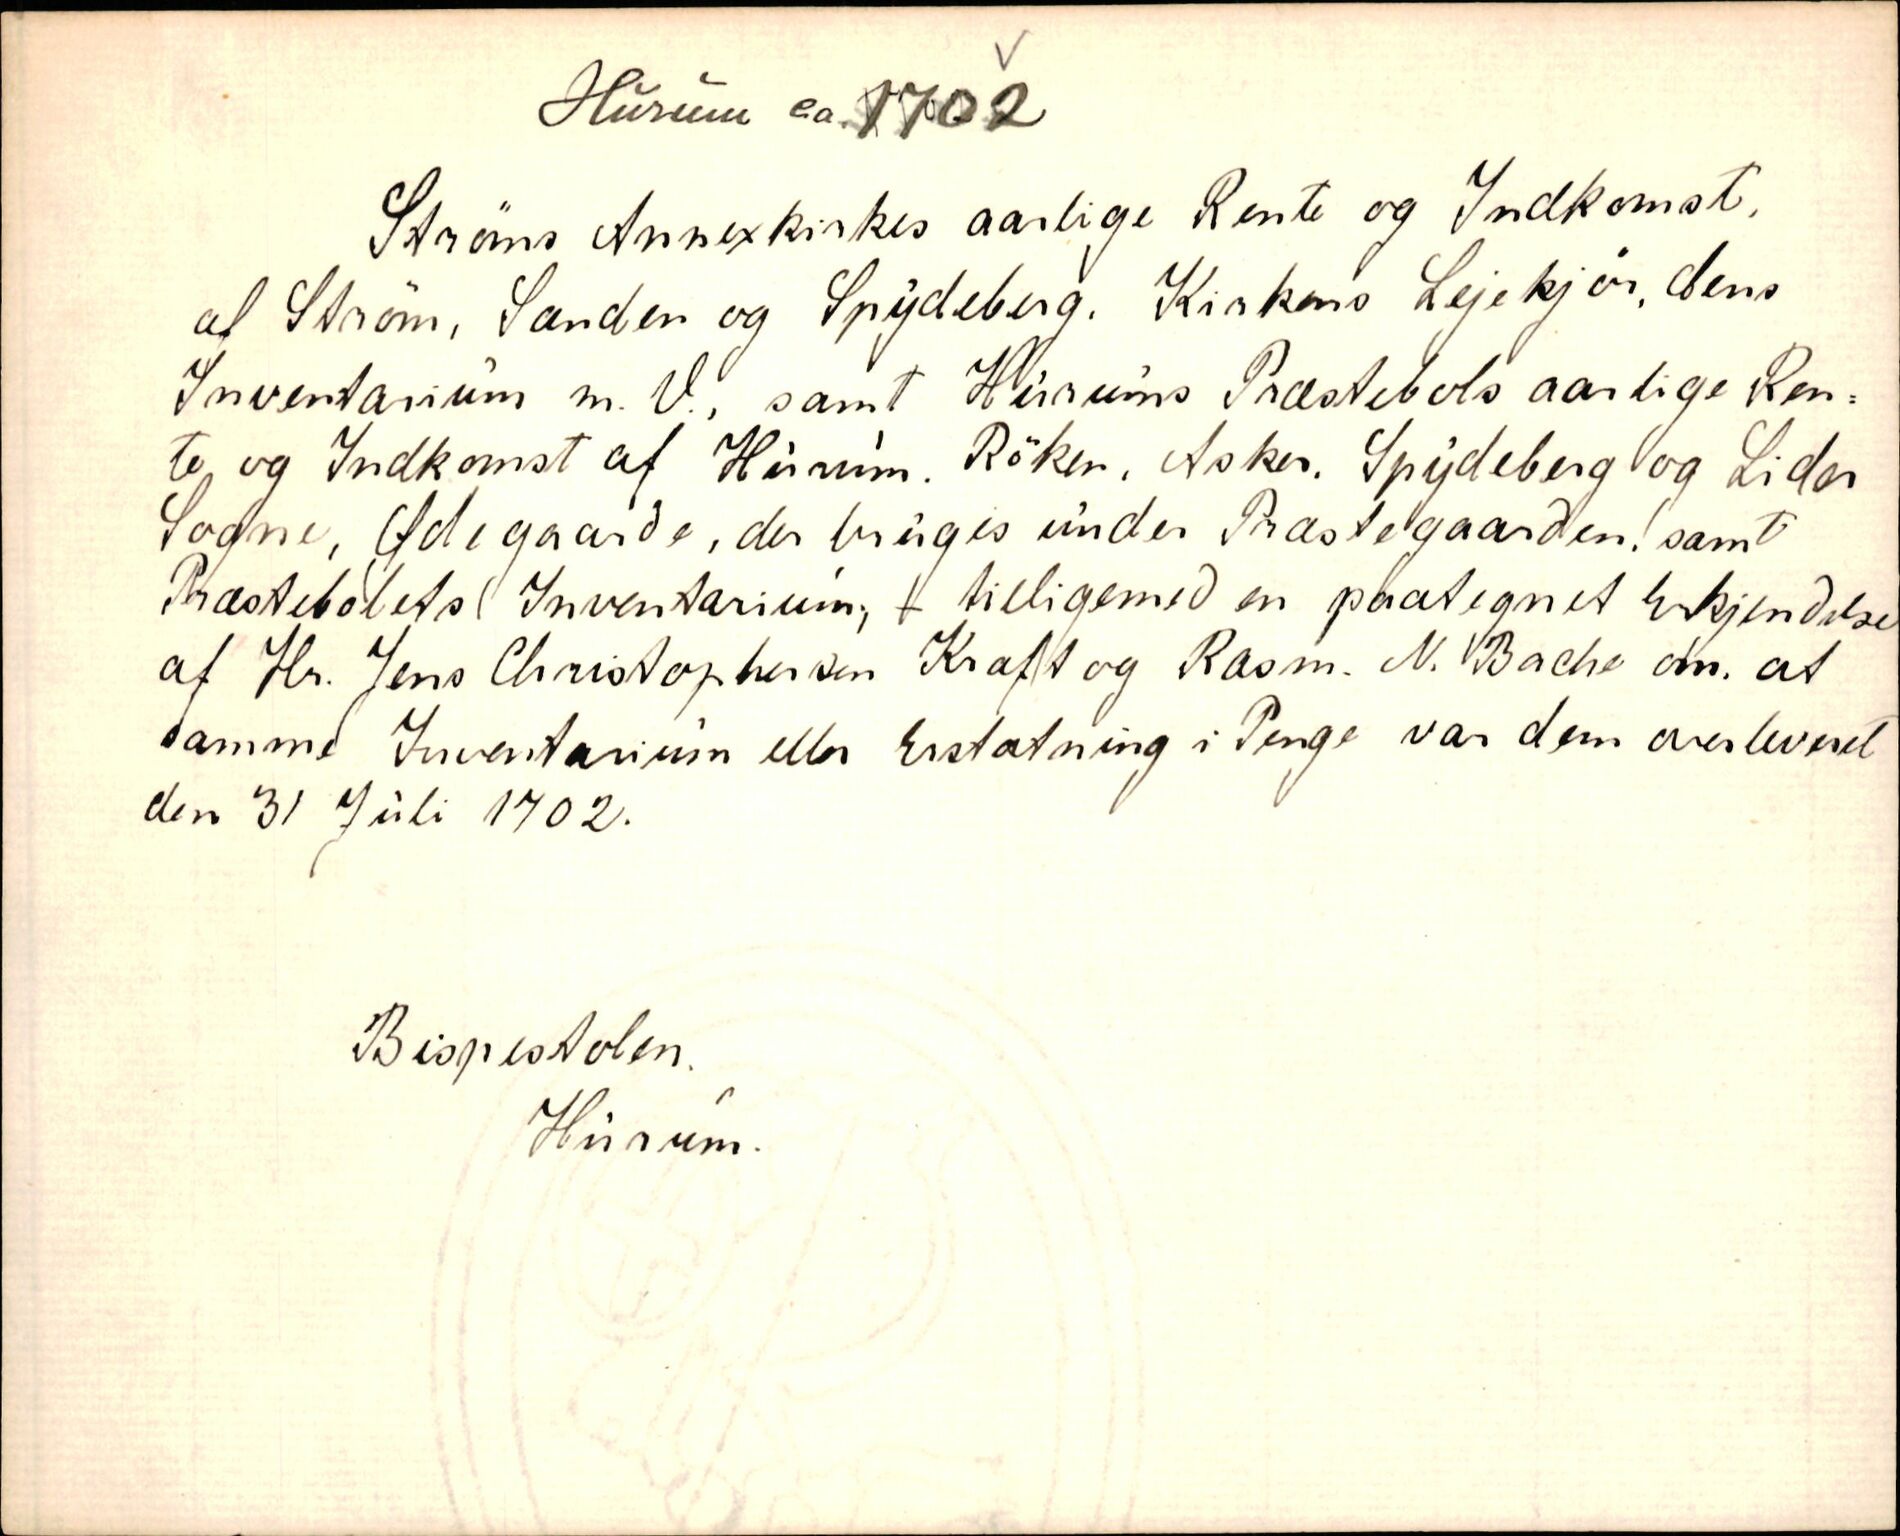 Hurum ca. 1702
Ströms Annexkirkes aarlige Rente og Indkomst,
af Ström, Sanden og Spydeberg. Kirkens Lejekjör, dens
Inventarium m. V., samt Hurums Præstebols aarlige Ren=
te og Indkomst af Hurum. Röken, Asker, Spydeberg og Lider
Sogne, Ødegaarde, der bruges under Præstegaarden, samt
Præstebolets Inventarium; + tilligemed en paategnet Erkjendelse
af Hr. Jens Christophersen Kraft og Rasm. N. Bache om, at
samme Inventarium eller Erstatning i Penge var dem overleveret
den 31 Juli 1702.
Bispestolen.
Hurum.